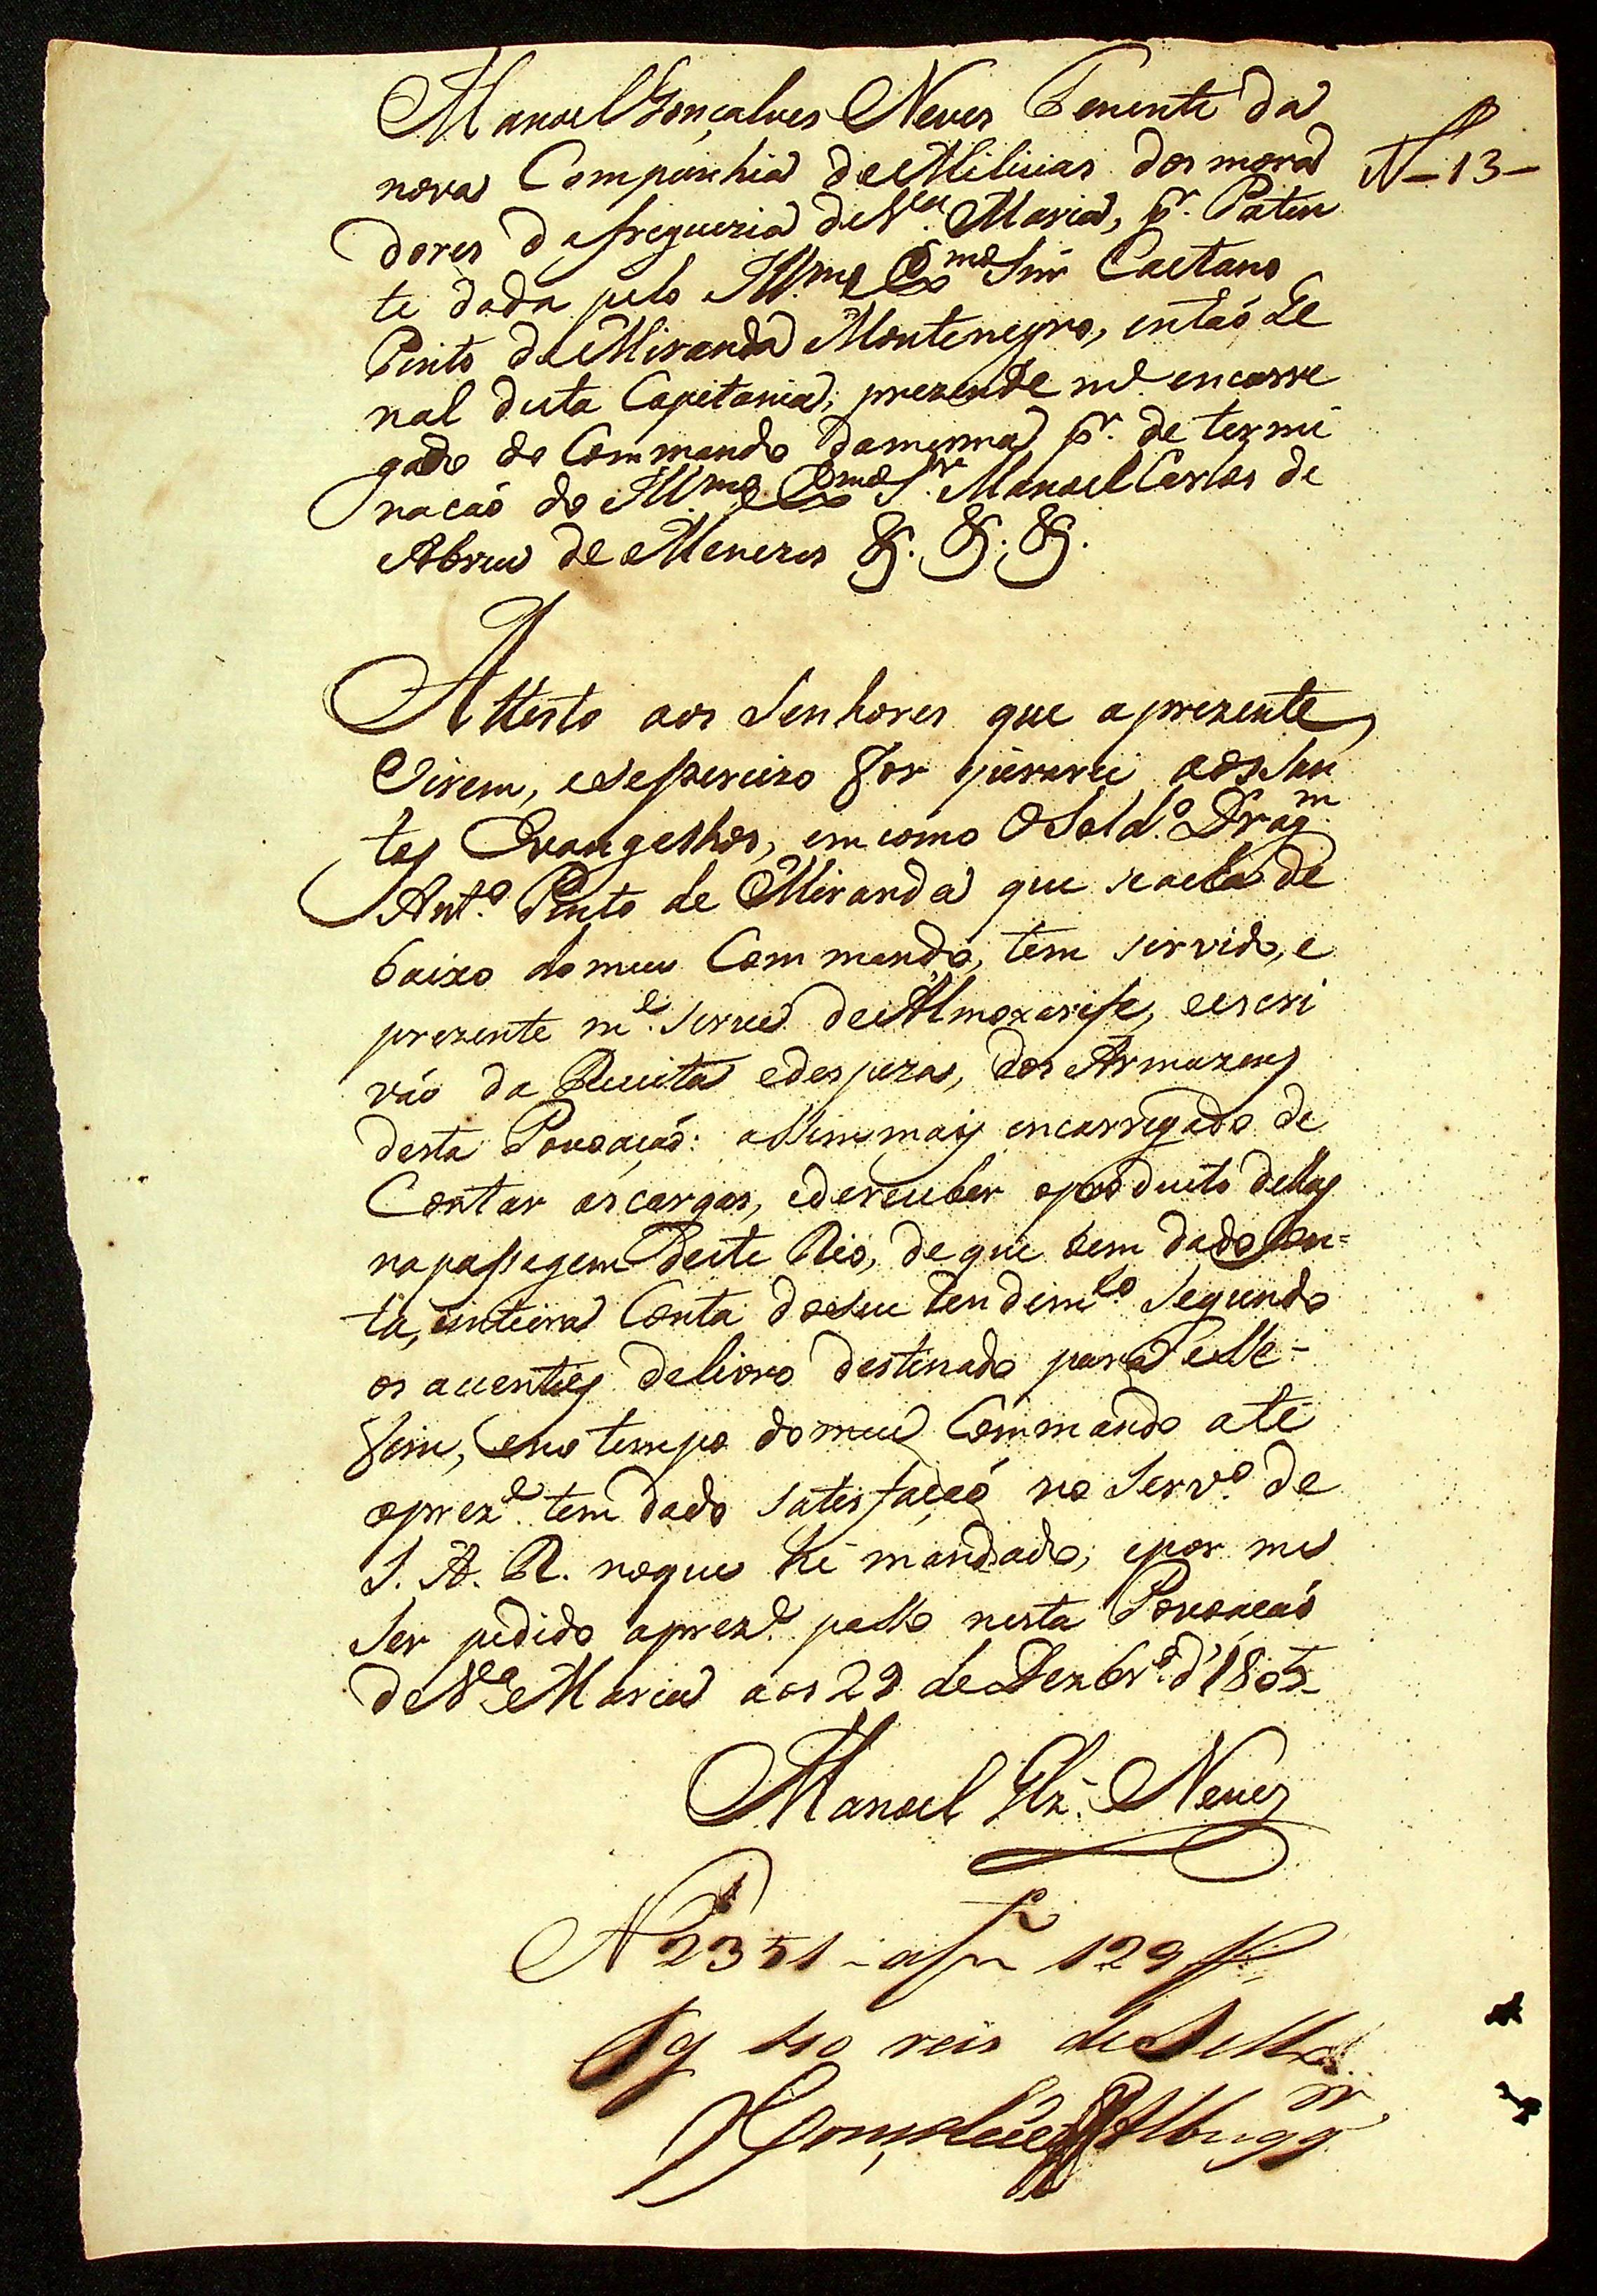 Manoel Gonçalves Neves Tenente da
nova Companhia de Milicias dos mora
N-13-
dores da freguezia de V.ª Maria, p.r Paten
te dada pelo Ill.mo e Ex.mo Snr Caetano
Pinto de Miranda Montenegro, então Ge
nal desta Capitania, prezente m.e encarre
gado do Commando da mesma p.r determi
nacaó do Ill.mo e Ex.mo S.r Manoel Carlos de
Abreu de Menezes &. &. &.
Attesto aos Senhores que aprezente
Virem, e se percizo for jurarei aos San
tos Evangelhos, em como O Sold.o Drag.m
Ant.o Pinto de Miranda que se acha de
baixo do meu Commando, tem servido, e
prezente m.e serve de Almoxarife, e escri
vaó da Receita e despeza, dos Armazens
desta Povoacaó: assim mais encarregado de
Contar as cargas, e receuber o producto dellas
na passagem deste Rio, de que tem dado Con=
ta, inteira Conta do seu rendim.to Segundo
os acentos de livro destinado para esse-
fim, e no tempo do meu Commando até
o prez.e tem dado satisfaçaó no Serv.o de
S. A. R. no que hé mandado, e por me
Ser pedido a prez.e passo nesta Povoacaó
de V.ª Maria aos 29 de Dezbr.o d'1805-
Manoel Glz. Neves
N 2351 - a f 129
Pg 40 reis de Sello